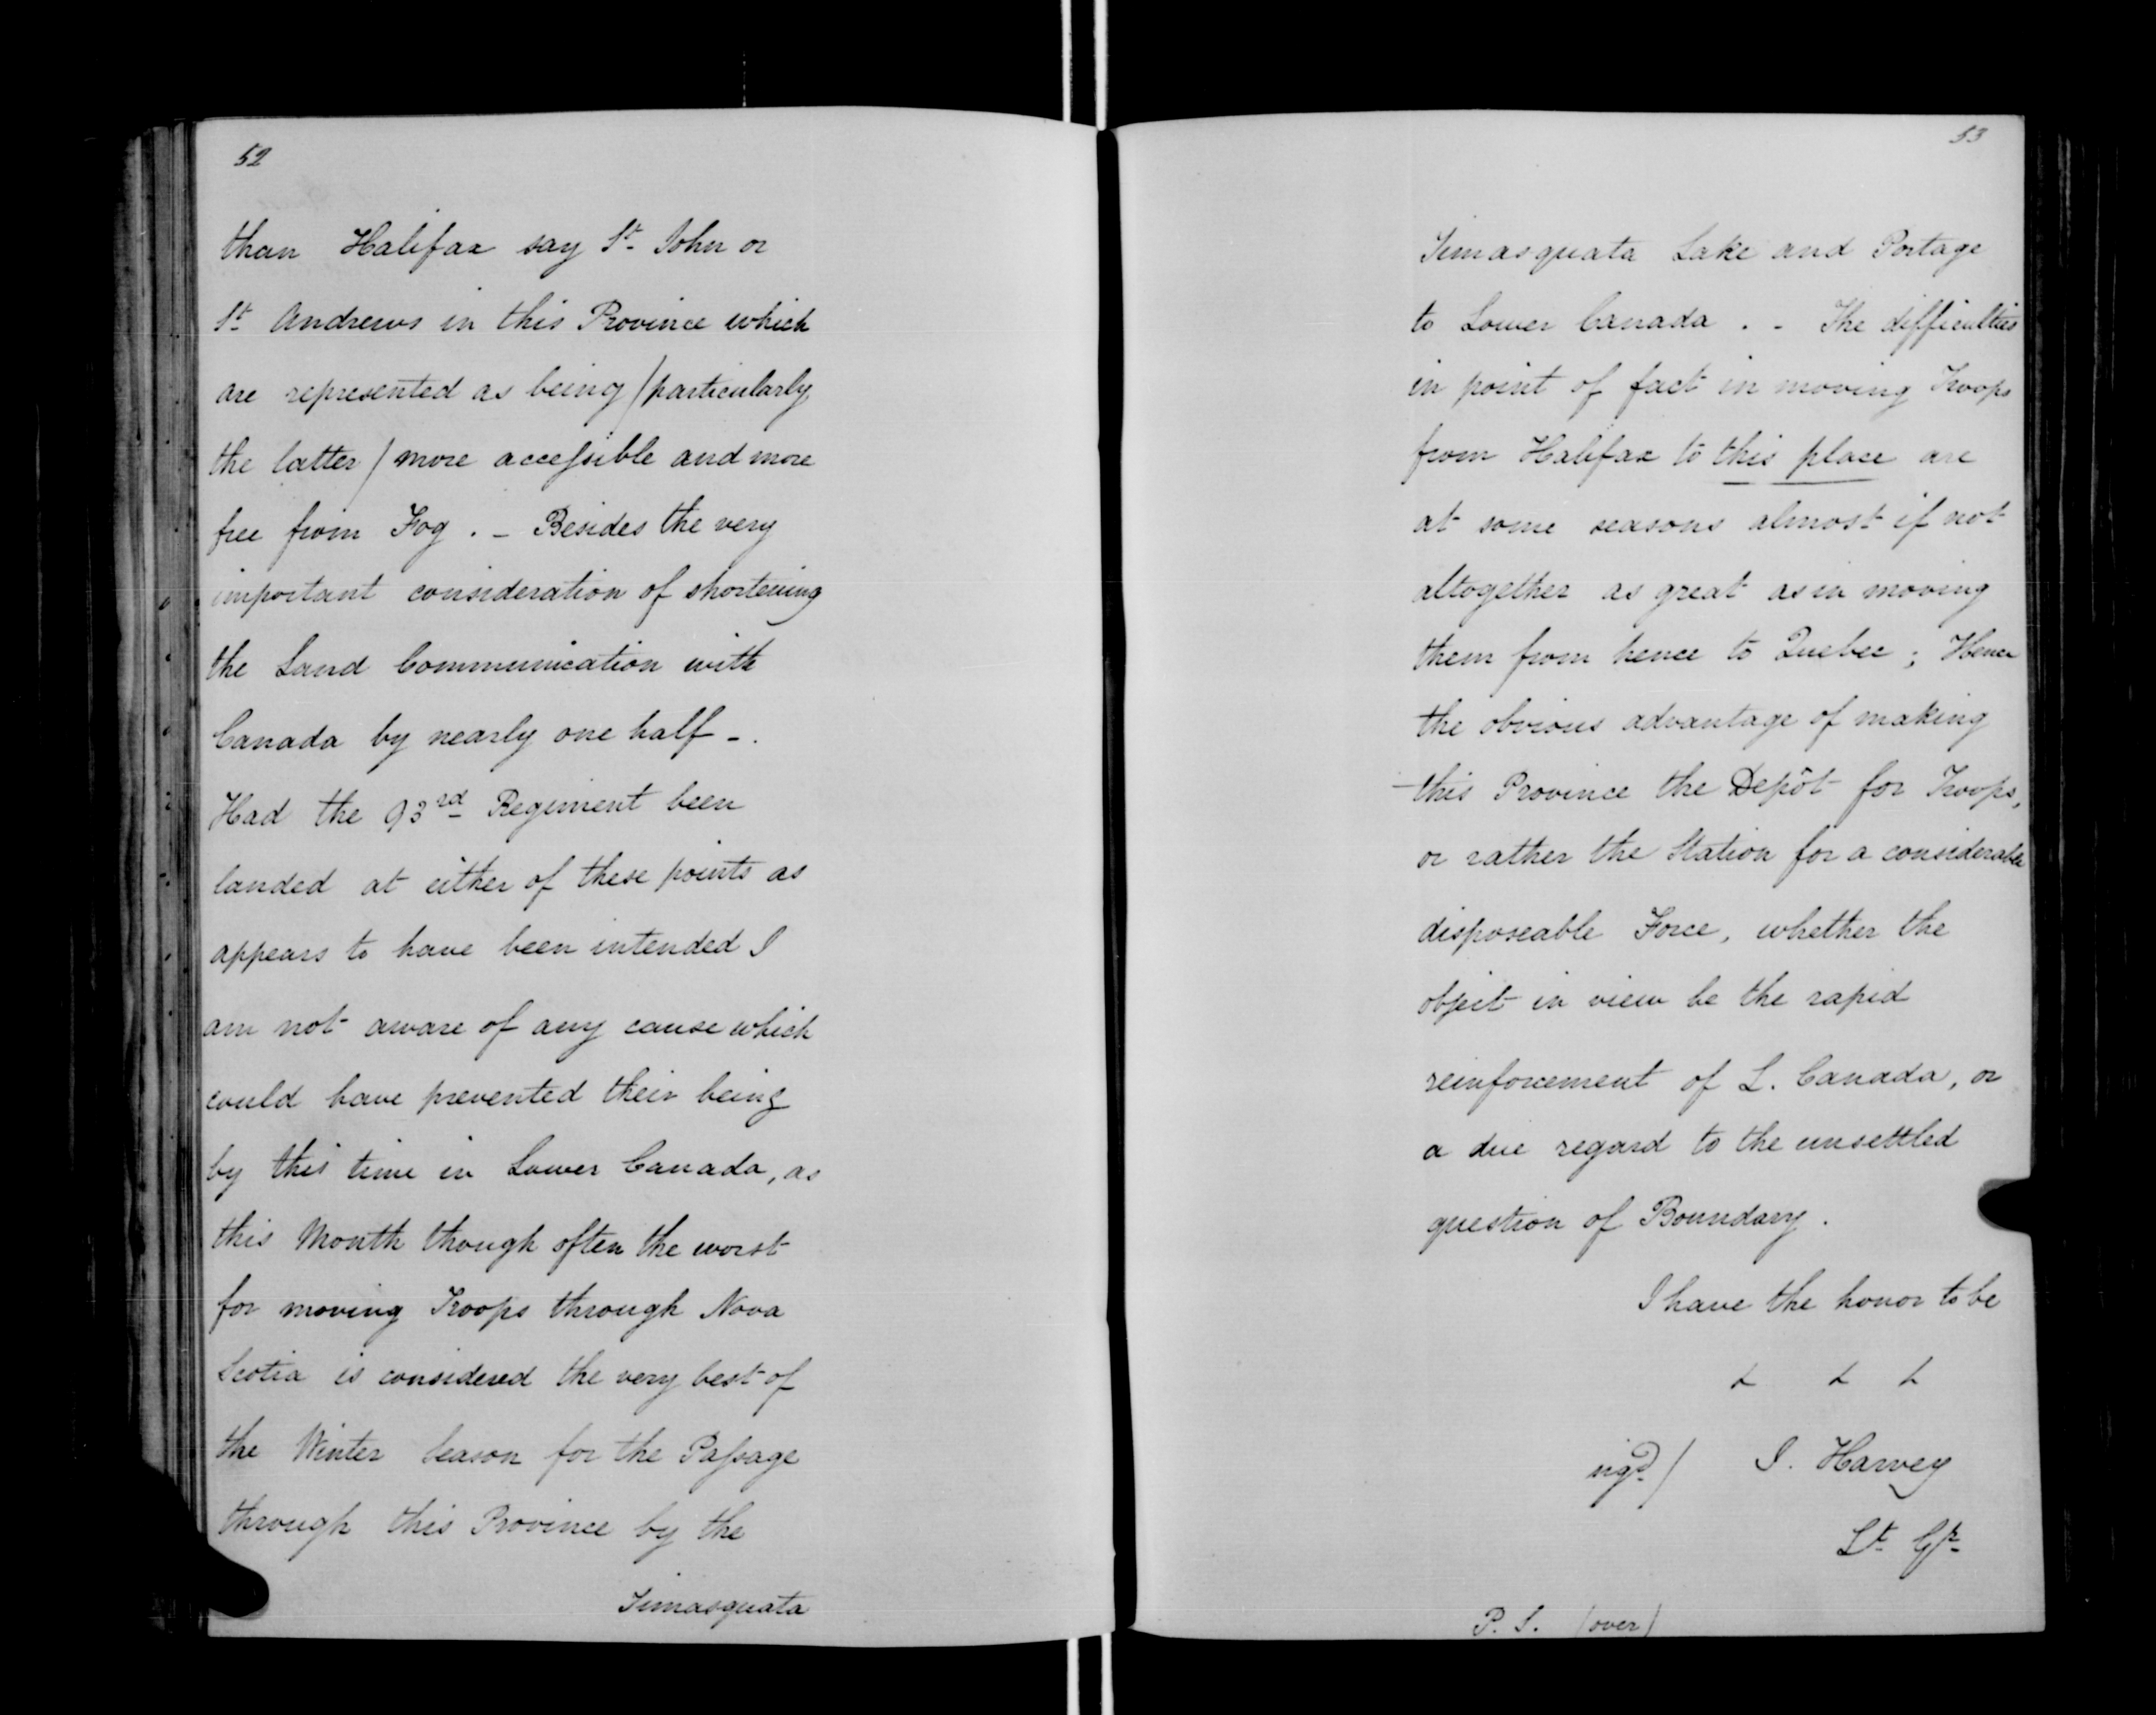 52
than Halifax say St. John or
St. Andrews in this Province which
are represented as being (particularly
the latter) more accessible and more
free from Fog. - Besides the very
important consideration of shortening
the Land Communication with
Canada by nearly one half -.
Had the 93rd Regiment been
landed at either of these points as
appears to have been intended I
am not aware of any cause which
could have prevented their being
by this time in Lower Canada, as
this Month though often the worst
for moving Troops through Nova
Scotia is considered the very best of
the Winter Season for the Passage
through this Province by the
Timasquata
53
Timasquata Lake and Portage
to Lower Canada. - The difficulties
in point of fact in moving Troops
from Halifax to this place are
at some seasons almost if not
altogether as great as in moving
them from hence to Quebec; Hence
the obvious advantage of making
this Province the Depôt for Troops,
or rather the Station for a considerable
disposeable Force, whether the
object in view be the rapid
reinforcement of L. Canada, or
a due regard to the unsettled
question of Boundary.
I have the honor to be
& & &
sigd.) J. Harvey
Lt. Gr.
P. S. (over)